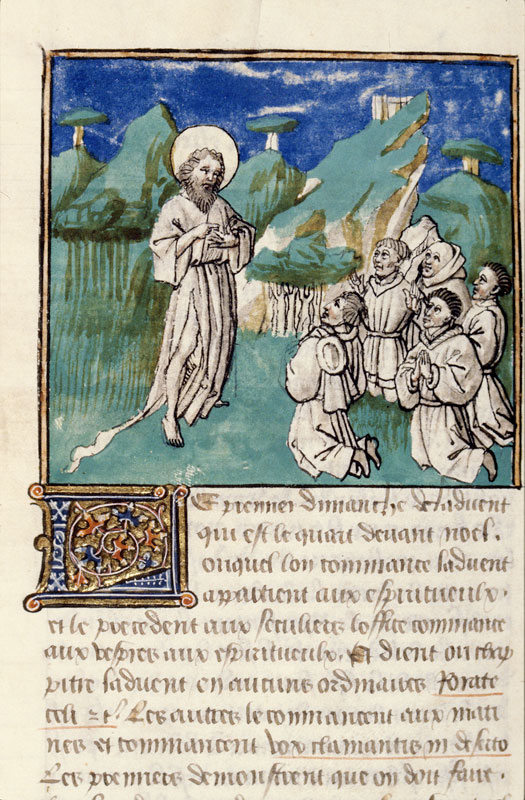 Le premier dimanche de ladvent
qui est le quart devant noel.
ouquel lon commance ladvent
apartient aux espirituelx.
et le precedent aux seculiers loffice commance
aux vespres aux espirituelx. Et dient ou chap
pitre ladvent en aucuns ordinaires Rorate
celi ⁊ t͛. Les autres le commancent aux mati
nes et commancent vox clamantis in deserto
Les premiers demonstrent que on doit faire.